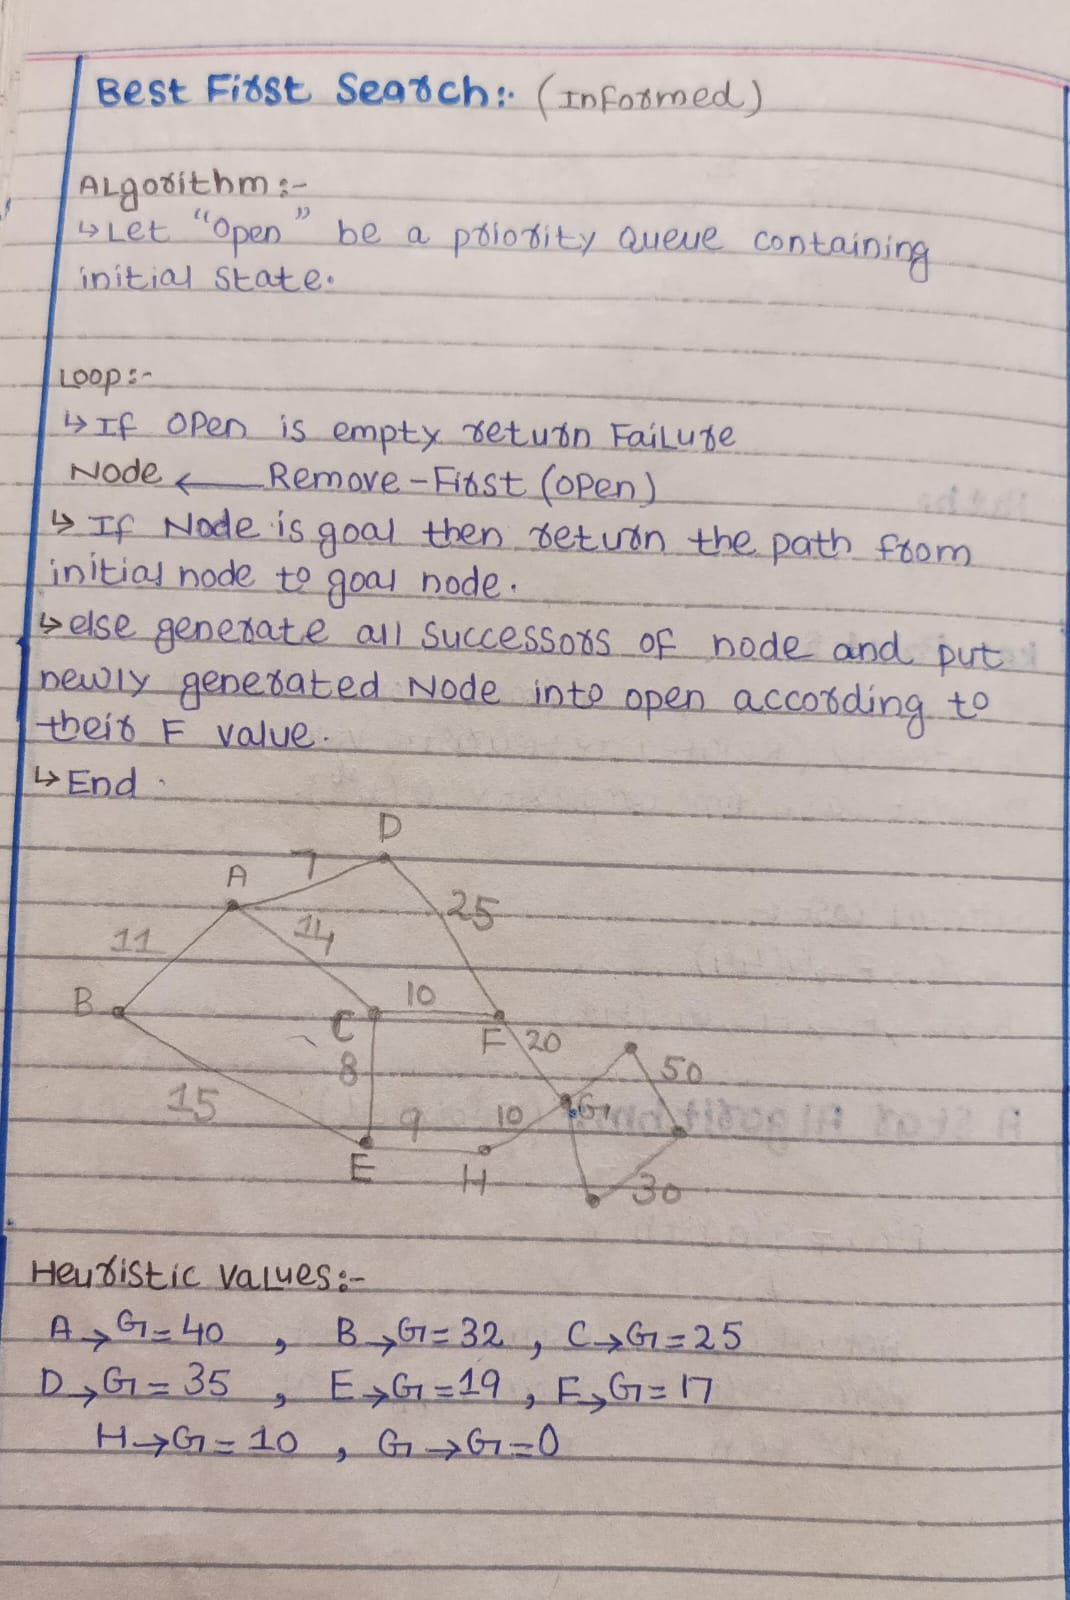 Best First Search:- (Informed)
Algorithm :-
↳ Let "Open" be a priority Queue containing
initial state.
Loop :-
↳ If Open is empty return Failure
Node ← Remove-First (open)
↳ If Node is goal then return the path from
initial node to goal node.
↳ else generate all successors of node and put
newly generated Node into open according to
their F value.
↳ End.
D
A 7
25
11 14
B 10
C F 20
8 50
15 9 10 G
E H 30
Heuristic values :-
A → G = 40 , B → G = 32 , C → G = 25
D → G = 35 , E → G = 19 , F → G = 17
H → G = 10 , G → G = 0